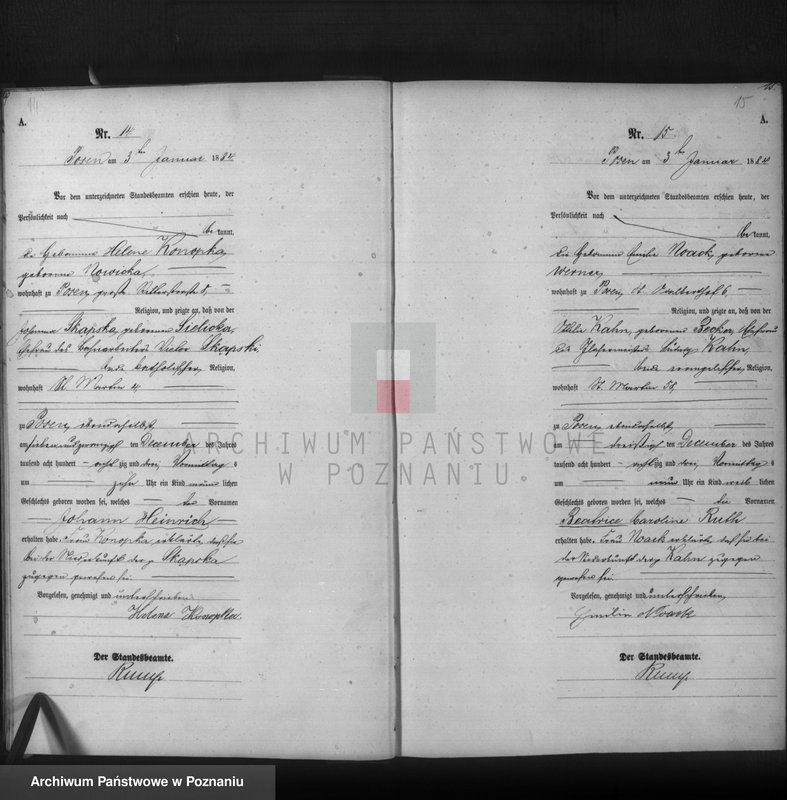 14
A.
Nr. 14
Posen am 3ten Januar 1884
Vor dem unterzeichneten Standesbeamten erschien heute, der
Persönlichkeit nach
be kannt,
die Hebamme Helene Konopka,
geborene Nowicka,
wohnhaft zu Posen, große Ritterstraße 5,
Religion, und zeigte an, daß von der
Skapska, geborenen Sielicka,
Ehefrau des Victor Skapski,
beide katholischer Religion,
wohnhaft St. Martin 4,
zu Posen, ebendaselbst,
am siebenundzwanzigsten December des Jahres
tausend acht hundert achtzig und drei, Vormittag s
um zehn Uhr ein Kind männ lichen
Geschlechts geboren worden sei, welches
Vornamen
Johann Heinrich
erhalten habe. Frau Konopka erklärte, daß sie
bei der Niederkunft der p. Skapska
zugegen gewesen sei.
Vorgelesen, genehmigt und unterschrieben
Helene Konopka
Der Standesbeamte.
15
A.
Nr. 15
Posen am 3ten Januar 1884
Vor dem unterzeichneten Standesbeamten erschien heute, der
Persönlichkeit nach
be kannt,
die Hebamme Emilie Noack, geborene
Werner,
wohnhaft zu Posen, St. Adalbertstr. 6,
Religion, und zeigte an, daß von der
Kahn, geborenen Becker, Ehefrau
des Glasermeisters Ludwig Kahn,
beide evangelischer Religion,
wohnhaft St. Martin 58,
zu Posen, ebendaselbst,
am dreißigsten December des Jahres
tausend acht hundert achtzig und drei, Vormittag s
um neun Uhr ein Kind weib lichen
Geschlechts geboren worden sei, welches die Vornamen
Beatrice Caroline Ruth
erhalten habe. Frau Noack erklärte, daß sie bei
der Niederkunft der p. Kahn zugegen
gewesen sei.
Vorgelesen, genehmigt und unterschrieben,
Emilie Noack
Der Standesbeamte.
ARCHIWUM PAŃSTWOWE
W POZNANIU
Archiwum Państwowe w Poznaniu